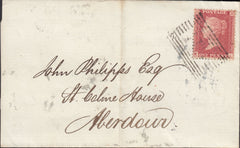 John Philipps Esq
St. Colme House
Aberdour.